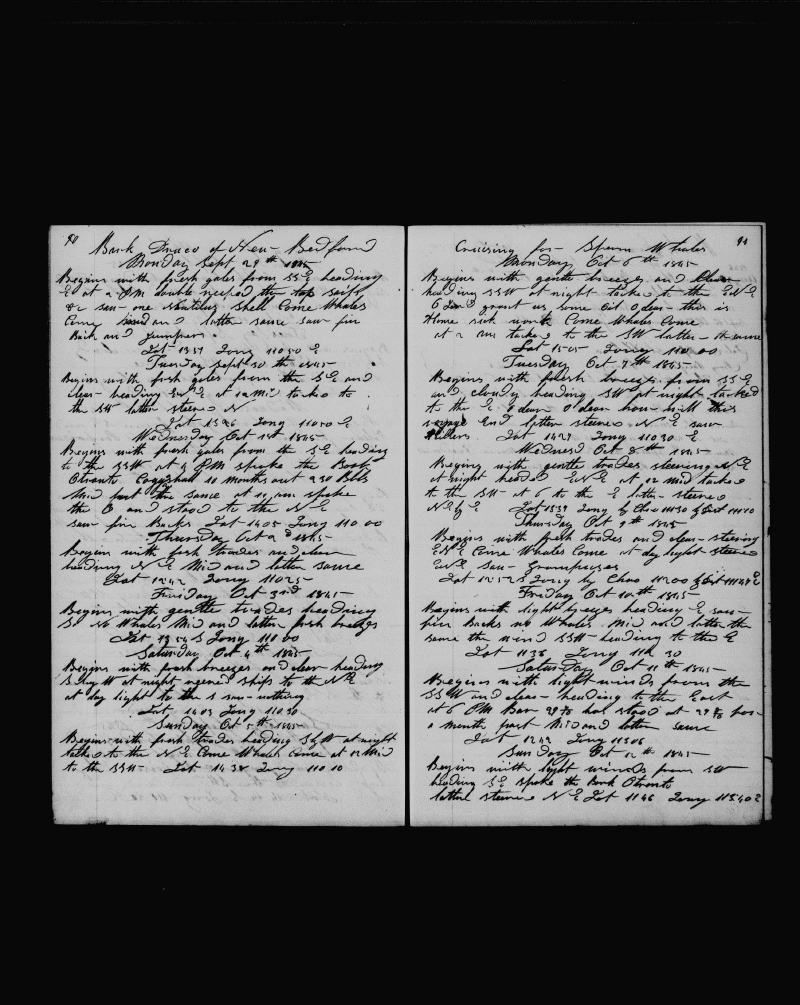 90
Bark Draco of New-Bedford
Monday Sept 29th 1845
Begins with fresh gales from SSE heading
E at 2 PM double reefed the top sails
&c saw one Nautilus Shell Come Whales
Come and latter same saw fin
Back and Jumper
Lat 1351 Long 11050 E
Tuesday Sept 30th 1845
Begins with fresh gales from the SE and
clear heading E at 12 Mid tacked to
the SW latter steered N
Lat 1326 Long 11000 E
Wednesday Oct 1st 1845
Begins with fresh gales from the SE heading
to the SSW at 4 PM spoke the Bark
Otranto Coggshal 10 months out 230 Bbls
Mid part the same at 11 am spoke
the O and stood to the N E
saw fin Backs Lat 1405 Long 110 00
Thursday Oct 2d 1845
Begins with fresh trades and clear
heading N E Mid and latter same
Lat 1242 Long 11025
Friday Oct 3rd 1845
Begins with gentle trades heading
So No Whales Mid and latter fresh breezes
Lat 1354 S Long 110 00
Saturday Oct 4th 1845
Begins with fresh breezes and clear heading
S by W at night weared ship to the N E
at day light to the S saw nothing
Lat 1403 Long 11030
Sunday Oct 5th 1845
Begins with fresh trades heading S by W at night
tacked to the N E Come Whales Come at 12 Mid
to the SSW Lat 1438 Long 110 10
91
Cruising for Sperm Whales
Monday Oct 6th 1845
Begins with gentle breezes and Clear
heading SSW at night tacked to the E N E
O Lord grant us some Oil O dear this is
Home sick work Come Whales Come
at 2 am tacked to the SW latter the same
Lat 1505 Long 110 00
Tuesday Oct 7th 1845
Begins with fresh breezes from SSE
and cloudy heading SW at night tacked
to the E O dear O dear how will this
voyage End latter steered N E saw
Lat 1427 Long 11030 E
Wednesd Oct 8th 1845
Begins with gentle trades steering N E
at night headed E N E at 12 mid tacked
to the SW at 6 to the E latter steered
N E by E Lat 1339 Long by Chro 11130 by
Thursday Oct 9th 1845
Begins with fresh trades and clear steering
E N E Come Whales Come at day light steered
saw Grampuses
Lat 1252 S Long by Chro 11200 by
Friday Oct 10th 1845
Begins with light breezes heading E saw
fin Backs no Whales Mid and latter the
same the wind SSW heading to the E
Lat 1136 Long 112 30
Saturday Oct 11th 1845
Begins with light winds from the
SSW and clear heading to the East
at 6 PM Bar has stood at for
a month past Mid and latter same
Lat 1242 Long 11306
Sunday Oct 12th 1845
Begins with light winds from SW
heading SE spoke the Bark Otranto
latter steered N E Lat 1146 Long 11340 E